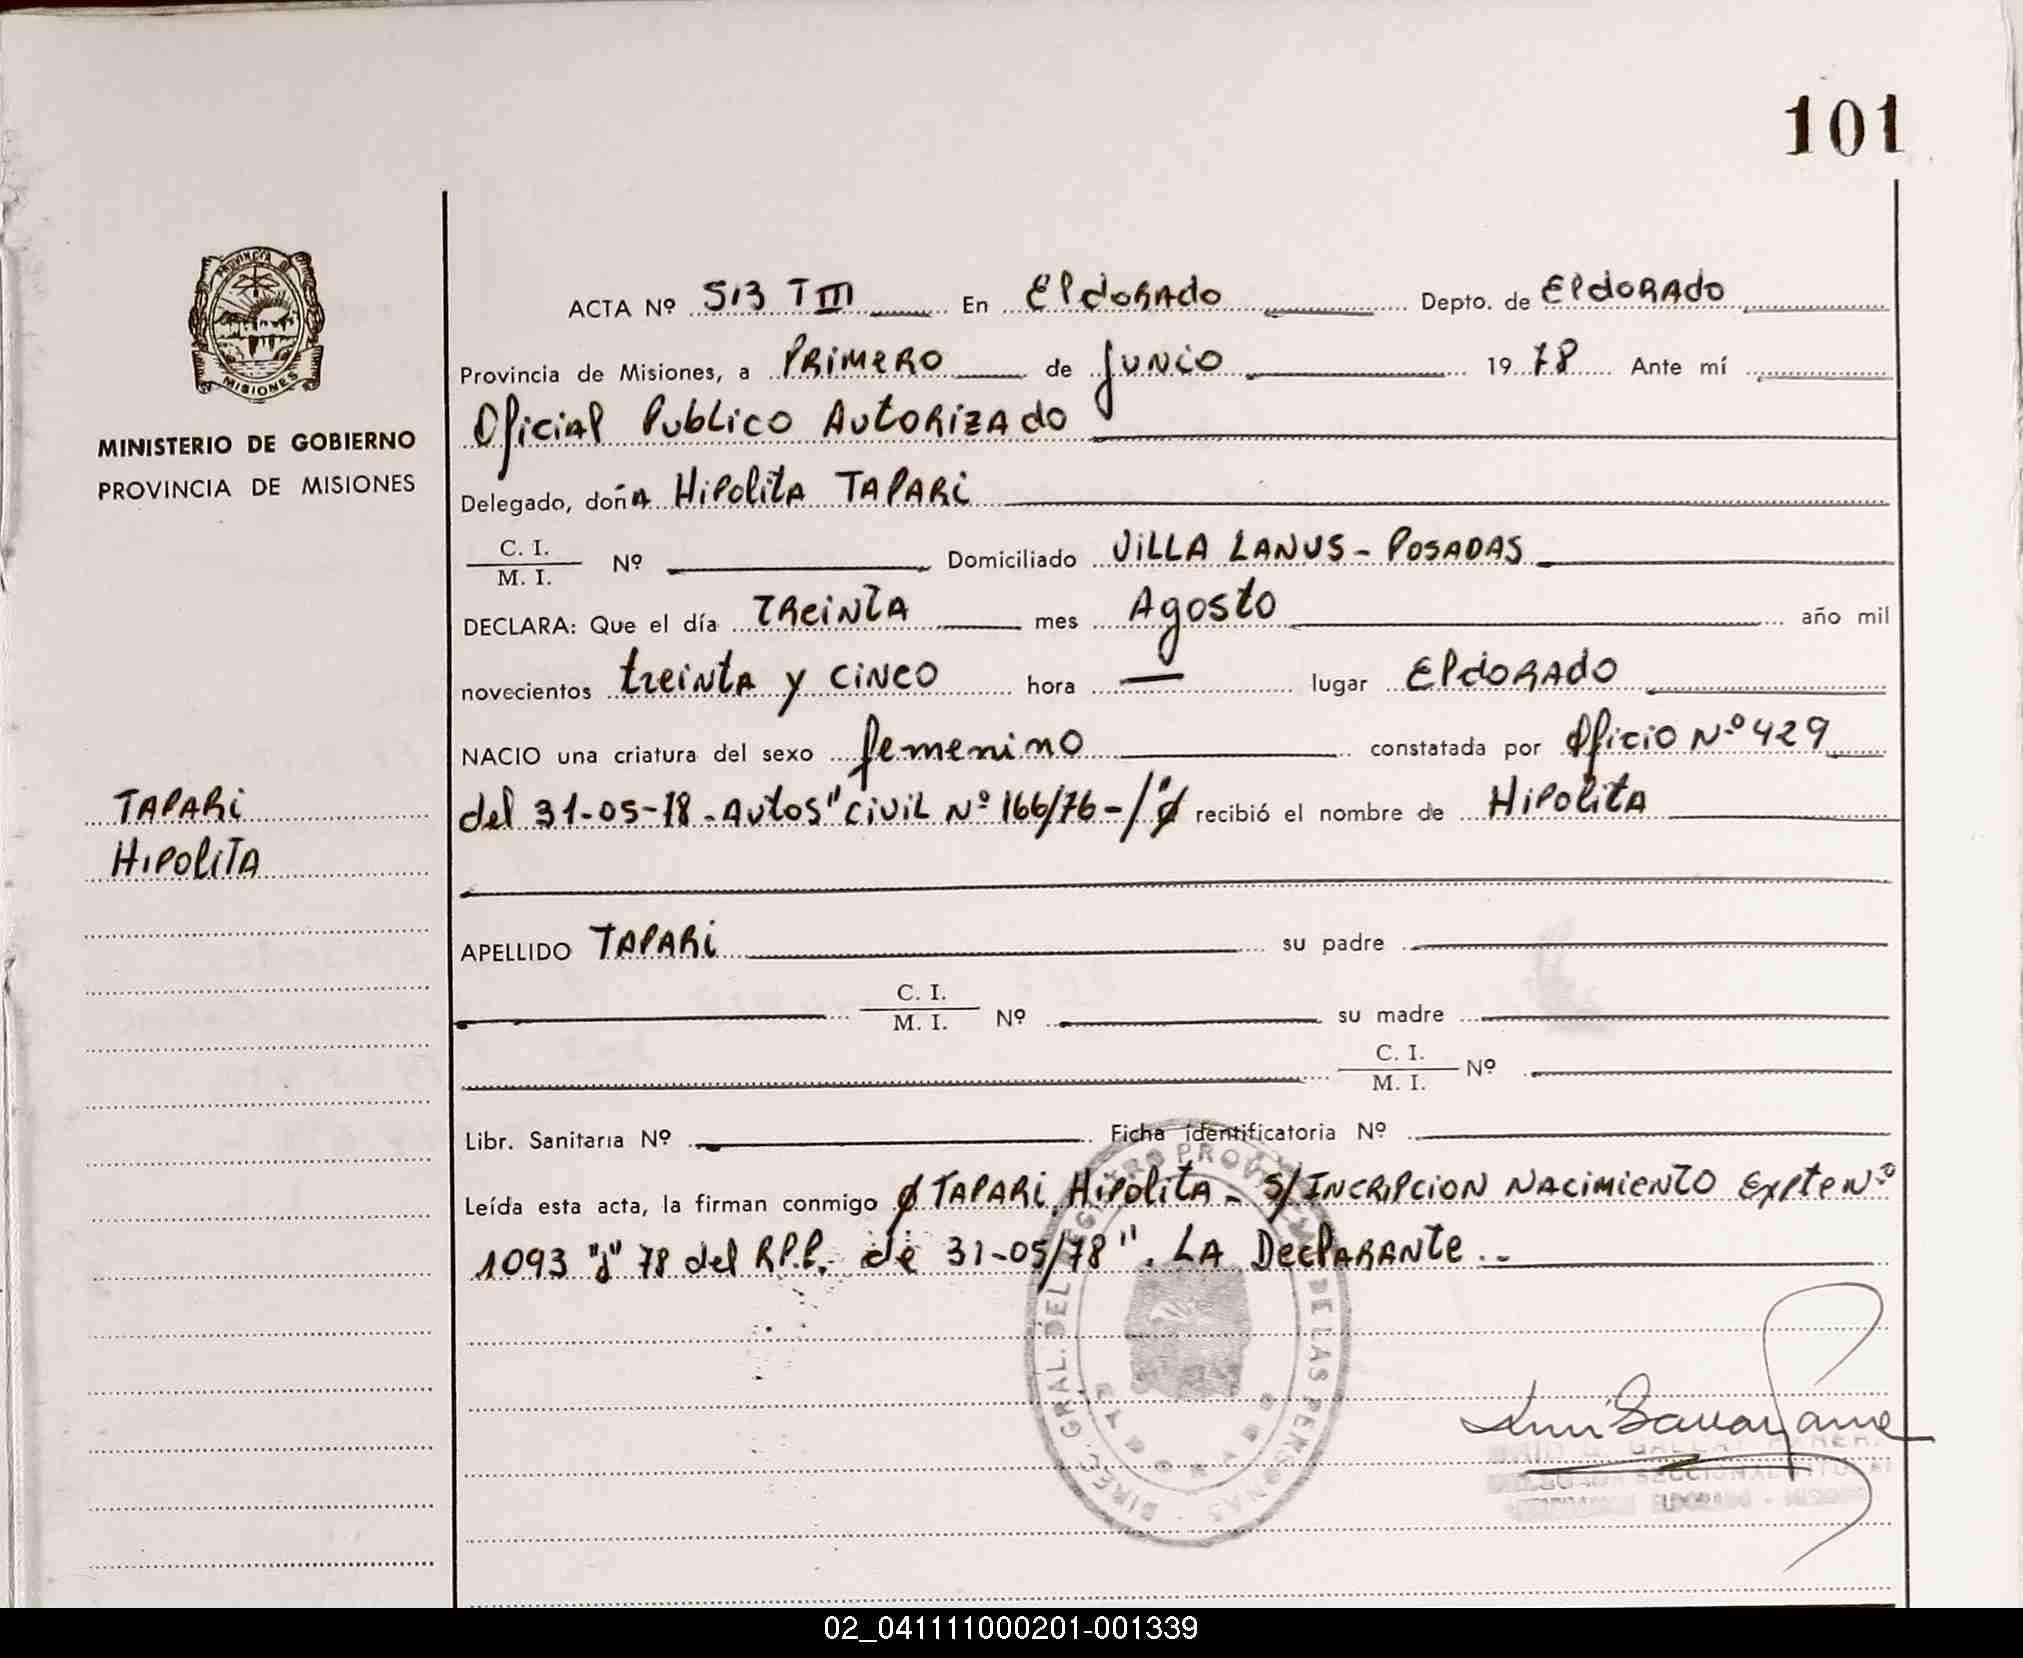 101
PROVINCIA DE
MISIONES
MINISTERIO DE GOBIERNO
PROVINCIA DE MISIONES
TAPARI
HIPOLITA
ACTA Nº 513 T III En Eldorado Depto. de Eldorado
Provincia de Misiones, a Primero de Junio 1978 Ante mí
Oficial Publico Autorizado
Delegado, doña Hipolita TAPARI
C. I.
M. I. Nº Domiciliado Villa Lanus - Posadas
DECLARA: Que el día Treinta mes Agosto año mil
novecientos treinta y cinco hora — lugar Eldorado
NACIO una criatura del sexo femenino constatada por Oficio Nº 429
del 31-05-78 - Autos "Civil Nº 166/76 - /" recibió el nombre de Hipolita
APELLIDO TAPARI su padre
C. I.
M. I. Nº su madre
C. I.
M. I. Nº
Libr. Sanitaria Nº Ficha identificatoria Nº
Leída esta acta, la firman conmigo TAPARI, Hipolita - S/ Incripcion Nacimiento Expte Nº
1093 "J" 78 del R.P.P. de 31-05/78". La Declarante..
DIREC. GRAL. DEL REGISTRO PROVINCIAL DE LAS PERSONAS
02_041111000201-001339